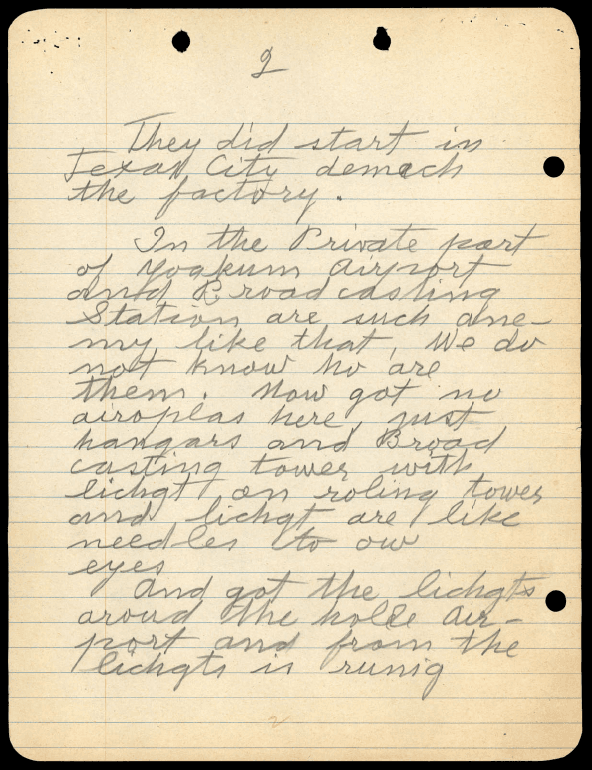 2
They did start in
Texas City demach
the factory.
In the Private part
of Yoakum Airport
and Broadcasting
Station are such ane-
my like that, We do
not know ho are
them. Now got no
airoplas here, just
hangars and Broad
casting tower with
lichgt on roling tower
and lichgt are like
needles to our
eyes
And got the lichgts
aroud the holle Air-
port and from the
lichgts is runig
2